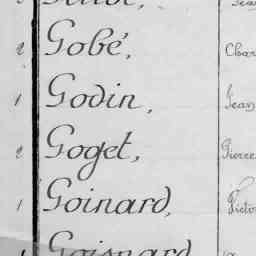 2 Gobé, Char
1 Godin, Jean
2 Goget, Pierre
1 Goinard, Victo
1 Goisnard